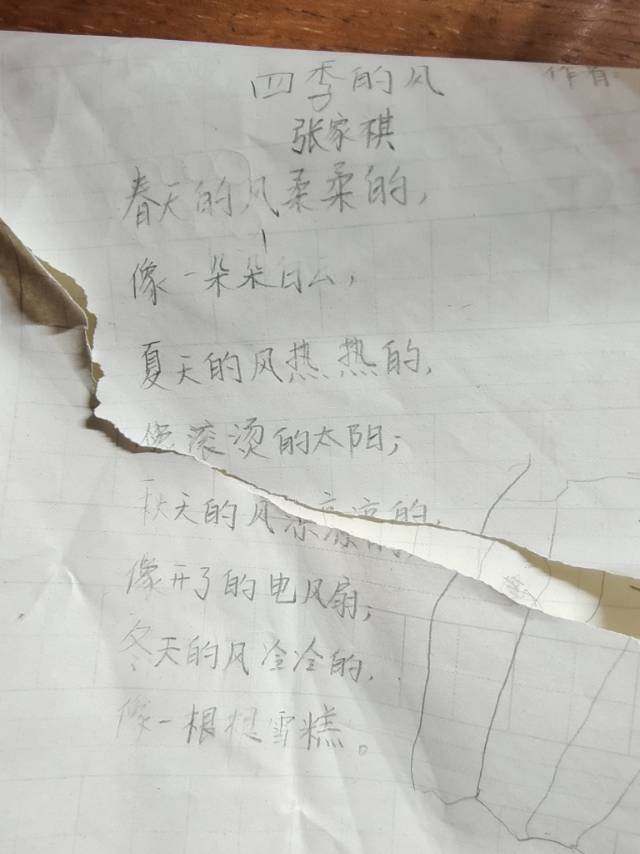 四季的风
作者
张家祺
春天的风柔柔的，
像一朵朵白云，
夏天的风热热的，
像滚烫的太阳；
秋天的风凉凉的，
像开了的电风扇；
冬天的风冷冷的，
像一根根雪糕。